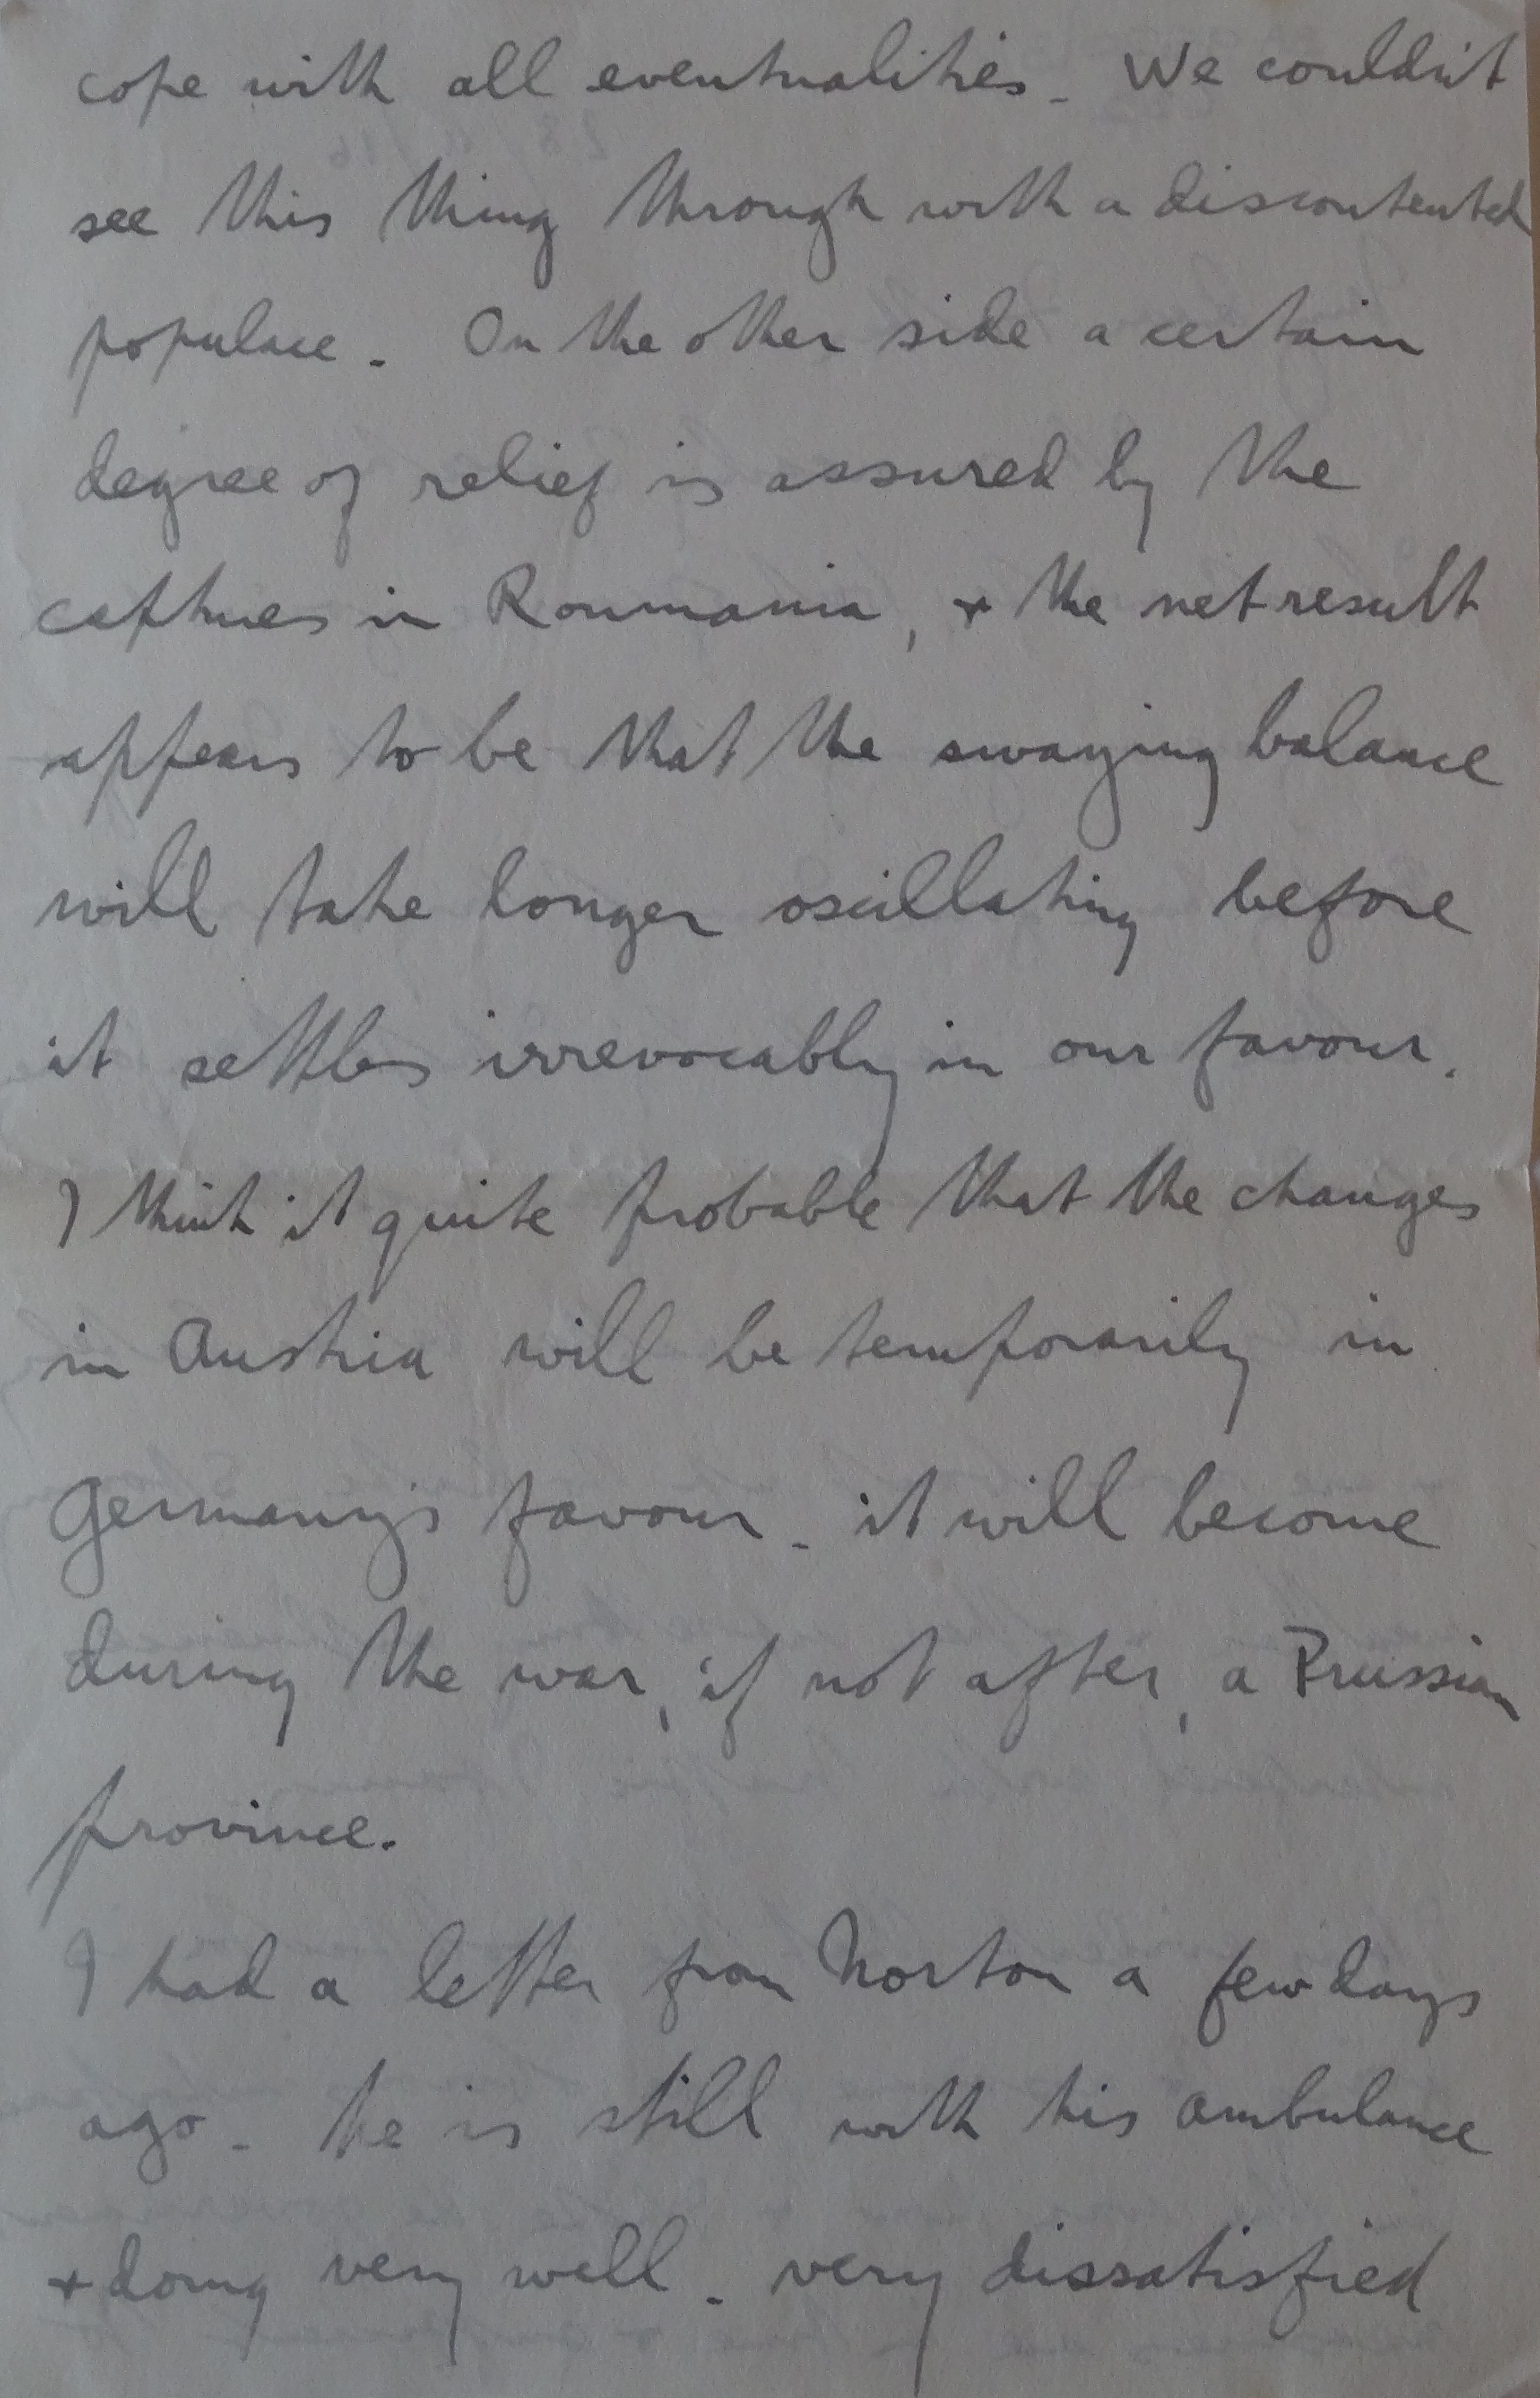 cope with all eventualities - We couldn't
see this thing through with a discontented
populace. On the other side a certain
degree of relief is assured by the
captures in Roumania, + the net result
appears to be that the swaying balance
will take longer oscillating before
it settles irrevocably in our favour.
I think it quite probable that the changes
in Austria will be temporarily in
Germany's favour - it will become
during the war, if not after, a Prussian
province.
I had a letter from Norton a few days
ago - he is still with his ambulance
+ doing very well - very dissatisfied